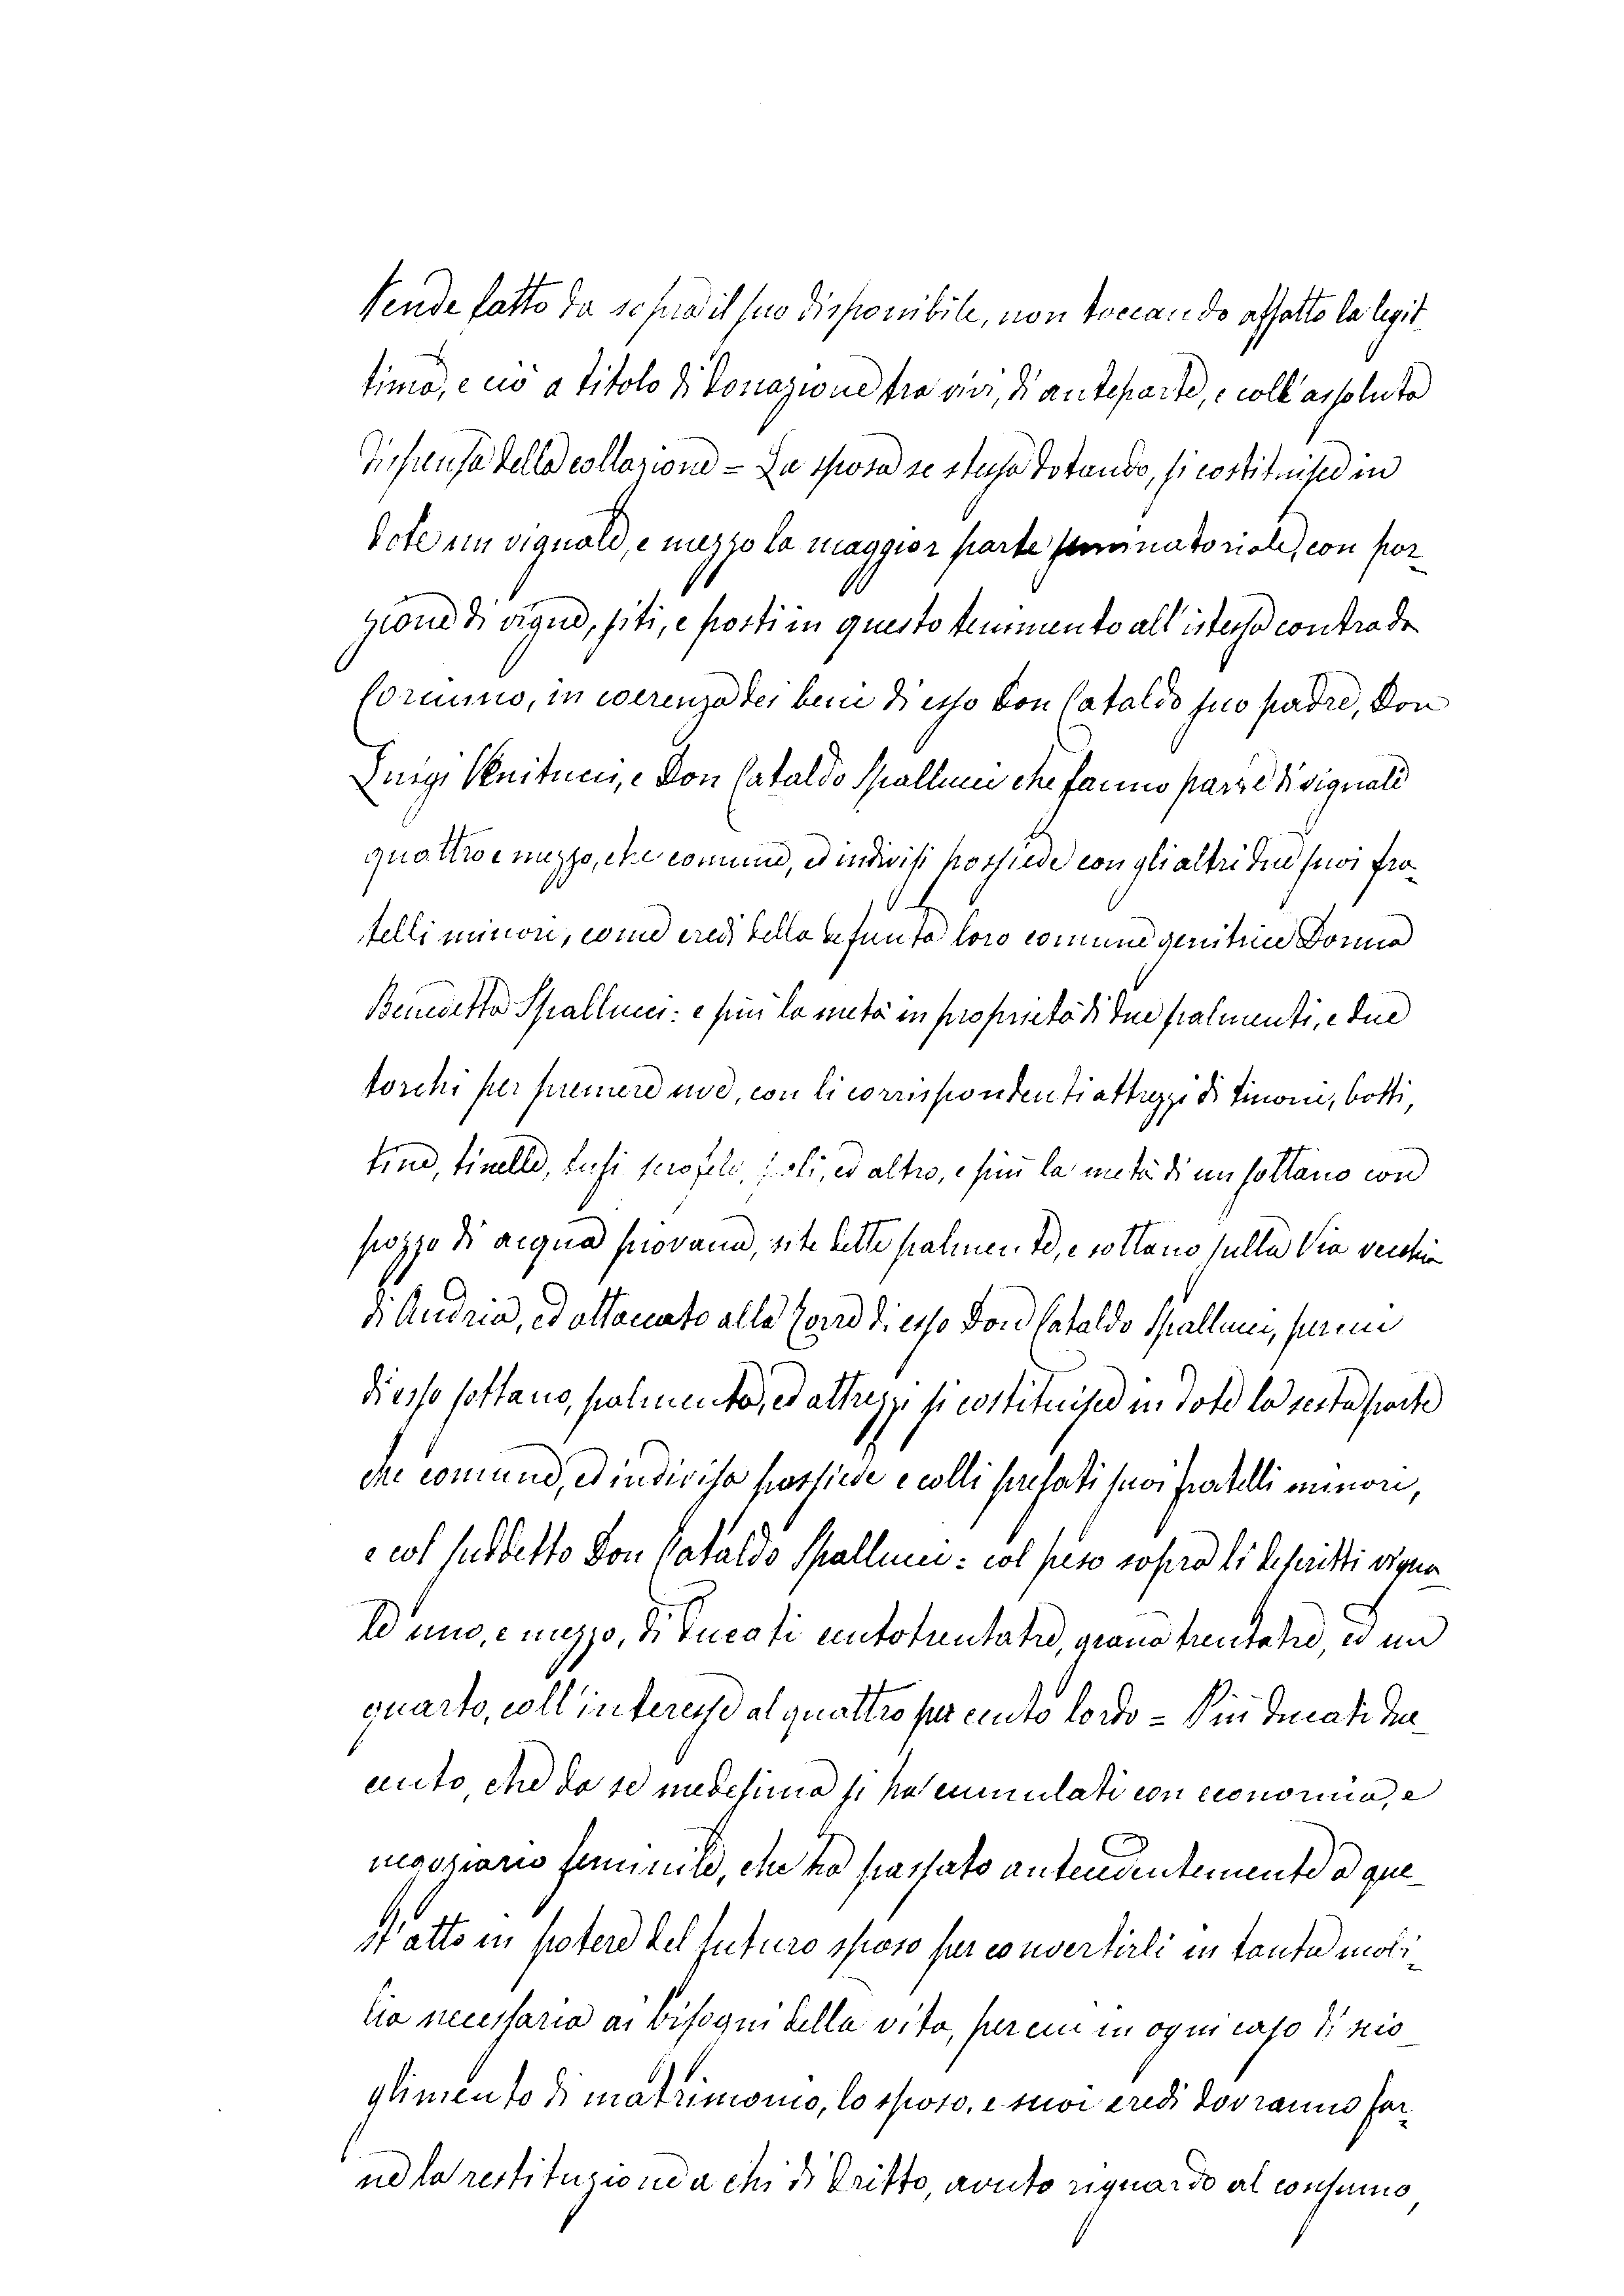 tende fatto da sopra il suo disponibile, non toccando affatto la legit
tima, e ciò a titolo di donazione tra vivi, di anteparte, e coll'assoluta
dispensa della collazione = La sposa se stessa dotando, si costituisce in
dote un vignale, e mezzo la maggior parte seminatoriale, con por_
zione di vigne, siti, e posti in questo tenimento all'istessa contrada
Cormino, in coerenza dei beni di esso Don Cataldo suo padre, Don
Luigi, e Don Cataldo Spallucci che fanno parte di vignali
quattro e mezzo, che comune, ed indivisi possiede con gli altri due suoi fra_
telli minori, come eredi della defunta loro comune genitrice Donna
Benedetta Spallucci: e più la metà in proprietà di due palmenti, e due
torchi per premere uve, con li corrispondenti attrezzi di tinoni, botti,
tine, tinelle, ed altro, e più la metà di un sottano con
pozzo di acqua piovana, site dette palmente, e sottano sulla Via vecchia
di Andria, ed attaccato alla Torre di esso Don Cataldo Spallucci, per cui
di esso sottano, palmento, ed attrezzi si costituisce in dote la sesta parte
che comune, ed indivisa possiede e colli prefati suoi fratelli minori,
e col suddetto Don Cataldo Spallucci: col peso sopra li descritti vigna_
le uno, e mezzo, di Ducati centotrentatre, grana trentatre, ed un
quarto, coll'interesse al quattro per cento lordo = Più ducati due_
cento, che da se medesima si ha cumulati con economia, e
negoziario feminile, che ha passato antecedentemente a que_
st'atto in potere del futuro sposo per convertirli in tanta mobi_
lia necessaria ai bisogni della vita, per cui in ogni caso di scio_
glimento di matrimonio, lo sposo, e suoi eredi dovranno far_
ne la restituzione a chi di dritto, avuto riguardo al consumo,